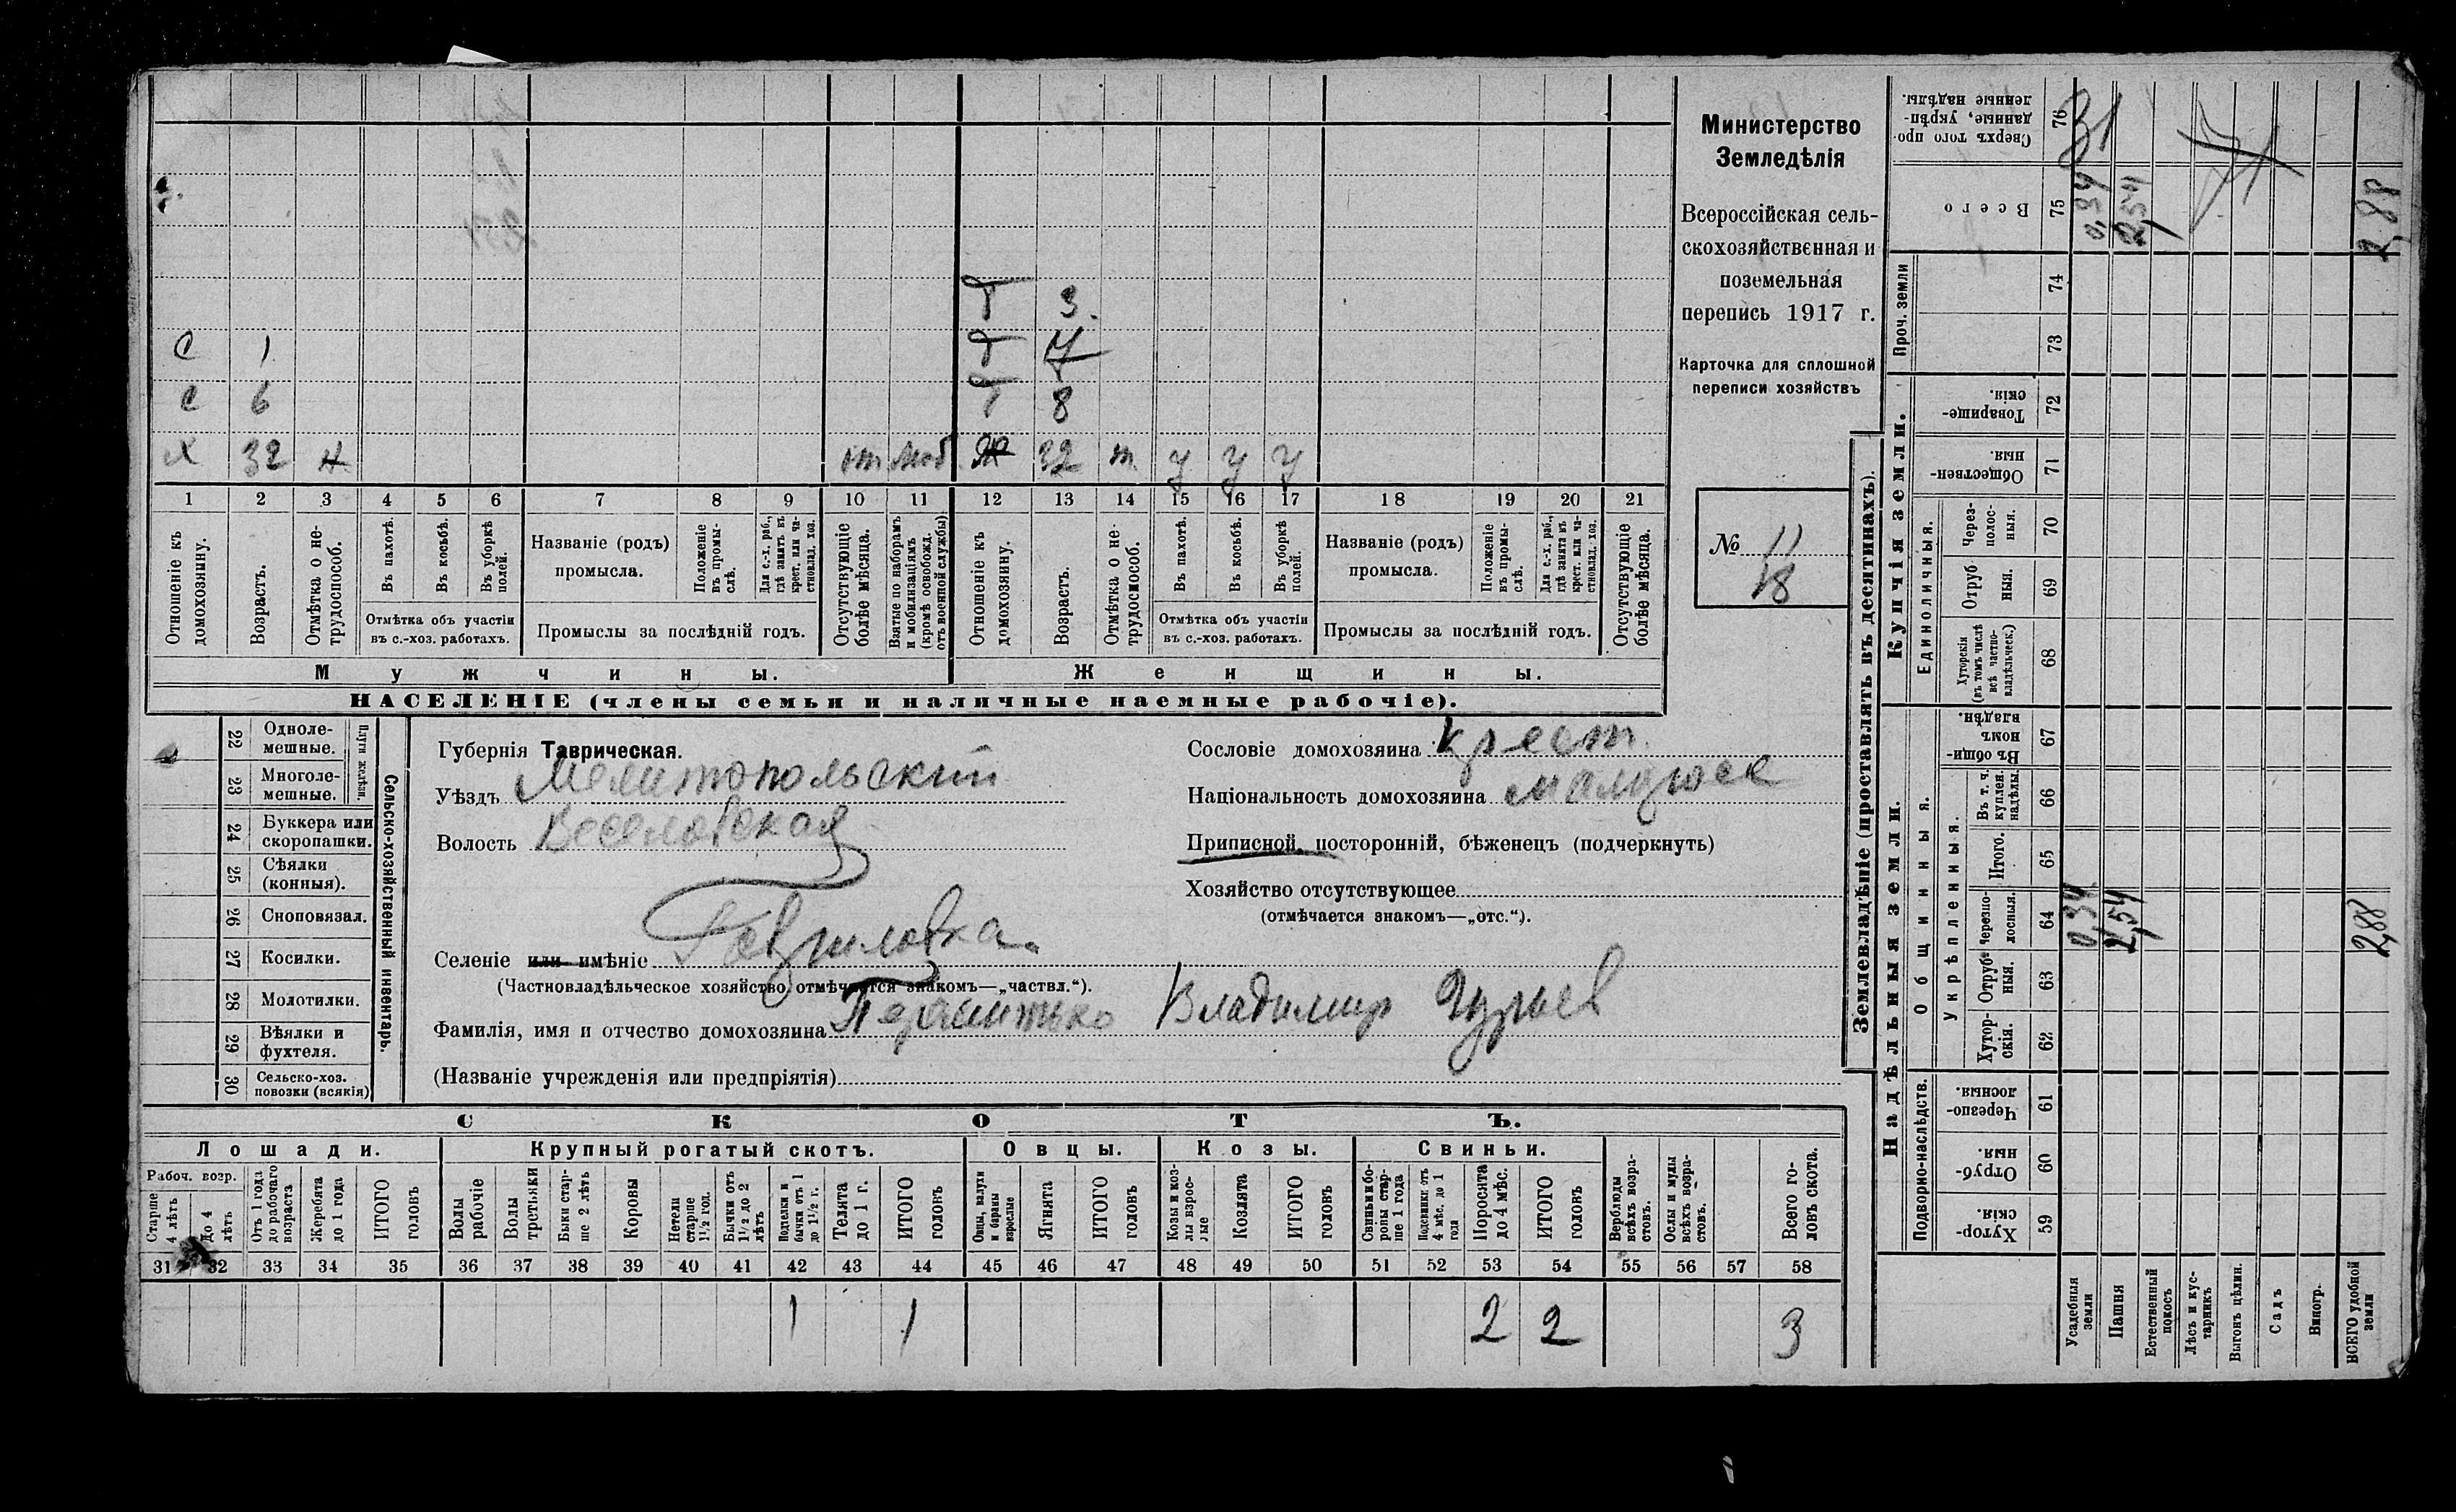 Т 3.
С 1 Т 4
С 6 Т 8
Х 32 н от моб Ж 32 т у у у
1 2 3 4 5 6 7 8 9 10 11 12 13 14 15 16 17 18 19 20 21
Отношеніе къ домохозяину.
Возрастъ.
Отмѣтка о не-
трудоспособ.
Въ пахотѣ.
Въ косьбѣ.
Въ уборкѣ полей.
Отмѣтка объ участіи
въ с.-хоз. работахъ.
Названіе (родъ)
промысла.
Положеніе въ промы-
слѣ.
Для с.-х. раб., гдѣ занятъ въ крест. или ча-
стновлад. хоз.
Промыслы за послѣдній годъ.
Отсутствующіе болѣе мѣсяца.
Взятые по наборамъ и мобилизаціямъ (кромѣ освобожд. отъ военной службы)
Отношеніе къ домохозяину.
Возрастъ.
Отмѣтка о не-
трудоспособ.
Въ пахотѣ.
Въ косьбѣ.
Въ уборкѣ полей.
Отмѣтка объ участіи
въ с.-хоз. работахъ.
Названіе (родъ)
промысла.
Положеніе въ промы-
слѣ.
Для с.-х. раб., гдѣ занята въ крест. или ча-
стновлад. хоз.
Промыслы за послѣдній годъ.
Отсутствующіе болѣе мѣсяца.
Мужчины. Женщины.
НАСЕЛЕНІЕ (члены семьи и наличные наемные рабочіе).
Министерство
Земледѣлія
Всероссійская сель-
скохозяйственная и
поземельная
перепись 1917 г.
Карточка для сплошной
переписи хозяйствъ
№ 11
18
22 Одноле-
мешные.
23 Многоле-
мешные.
Плуги желѣзн.
24 Буккера или
скоропашки.
25 Сѣялки
(конныя).
26 Сноповязал.
27 Косилки.
28 Молотилки.
29 Вѣялки и
фухтеля.
30 Сельско-хоз.
повозки (всякія)
Сельско-хозяйственный инвентарь.
Губернія Таврическая.
Уѣздъ Мелитопольский
Волость Веселовская
Селеніе или имѣніе Гавриловка.
(Частновладѣльческое хозяйство отмѣчается знакомъ—„частвл.“).
Фамилія, имя и отчество домохозяина Владимир Гурьев
(Названіе учрежденія или предпріятія)
Сословіе домохозяина крест.
Національность домохозяина малорос
Приписной, посторонній, бѣженецъ (подчеркнуть)
Хозяйство отсутствующее
(отмѣчается знакомъ—„отс.“).
СКОТЪ.
Лошади. Крупный рогатый скотъ. Овцы. Козы. Свиньи.
Рабоч. возр.
Старше 4 лѣтъ
До 4 лѣтъ
Отъ 1 года до рабочаго возраста
Жеребята до 1 года
ИТОГО головъ
Волы рабочіе
Волы третьяки
Быки стар-
ше 2 лѣтъ
Коровы
Нетели старше 1½ год.
Бычки отъ 1½ до 2 лѣтъ
Подтелки и бычки отъ 1 до 1½ г.
Телята до 1 г.
ИТОГО головъ
Овцы, валухи и бараны взрослые
Ягнята
ИТОГО головъ
Козы и коз-
лы взрос-
лые
Козлята
ИТОГО головъ
Свиньи и бо-
ровы стар-
ше 1 года
Подсвинки отъ 4 мѣс. до 1 года
Поросята до 4 мѣс.
ИТОГО головъ
Верблюды всѣхъ возра-
стовъ.
Ослы и мулы всѣхъ возра-
стовъ.
Всего го-
ловъ скота.
31 32 33 34 35 36 37 38 39 40 41 42 43 44 45 46 47 48 49 50 51 52 53 54 55 56 57 58
1 1 2 2 3
Землевладѣніе (проставлять въ десятинахъ).
Надѣльныя земли. Купчія земли. Проч. земли
Подворно-наслѣдств.
Общинныя.
Укрѣпленныя.
Единоличныя.
Хутор-
скія. 59
Отруб-
ныя. 60
Черезпо-
лосныя 61
Хутор-
скія. 62
Отруб-
ныя. 63
Черезпо-
лосныя. 64
Итого. 65
Въ т. ч. куплен. надѣлы. 66
Въ общи-
номъ владѣн. 67
Хуторскія (въ томъ числѣ всѣ частно-
владѣльческ.) 68
Отруб
ныя. 69
Через-
полос-
ныя. 70
Обществен-
ныя. 71
Товарище-
скія. 72
73
74
Всего 75
Сверхъ того про-
данные, укрѣп-
ленные надѣлы. 76
Усадебныя земли 0,34 0,34 31
Пашня 2,54 2,54
Естественный покосъ
Лѣсъ и кус-
тарникъ
Выгонъ цѣлин.
Садъ
Виногр.
ВСЕГО удобной земли 2,88 2,88